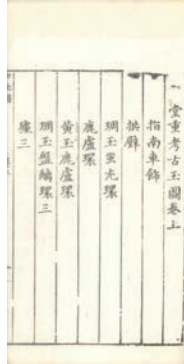 一堂重考古玉圖卷上
指南車飾
拱璧
琱玉蚩尤環
鹿盧環
黃玉鹿盧環
琱玉盤螭環三
璩三